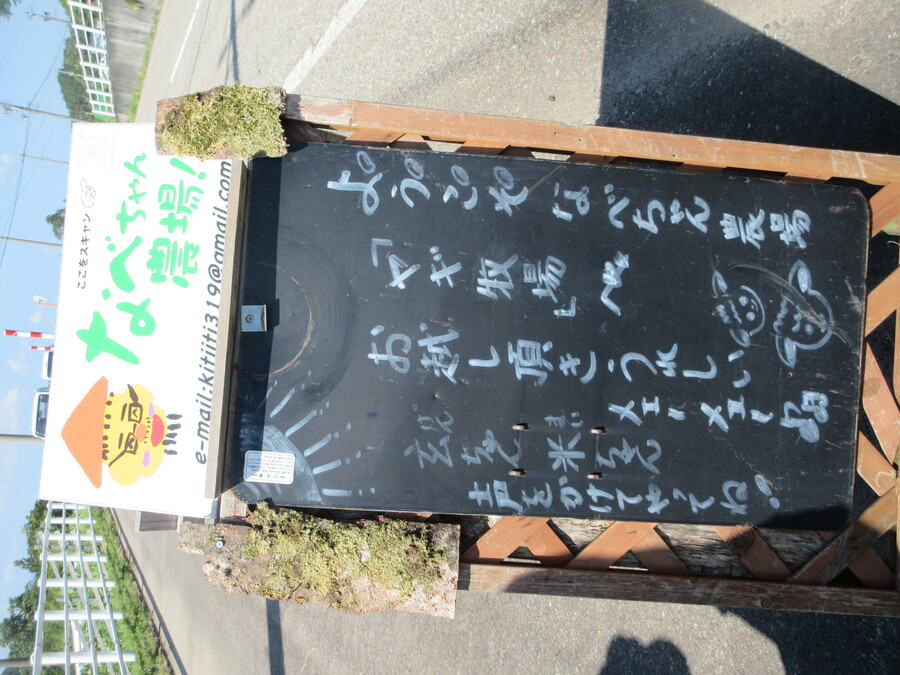 ここをスキャン
なべちゃん
農場!
e-mail:kitiiti319@gmail.com
ようこそ なべちゃん農場
ヤギ牧場へ
お越し頂きうれしい
メェーメェー
玄ちゃん 米ちゃん
声をかけてやってね!!